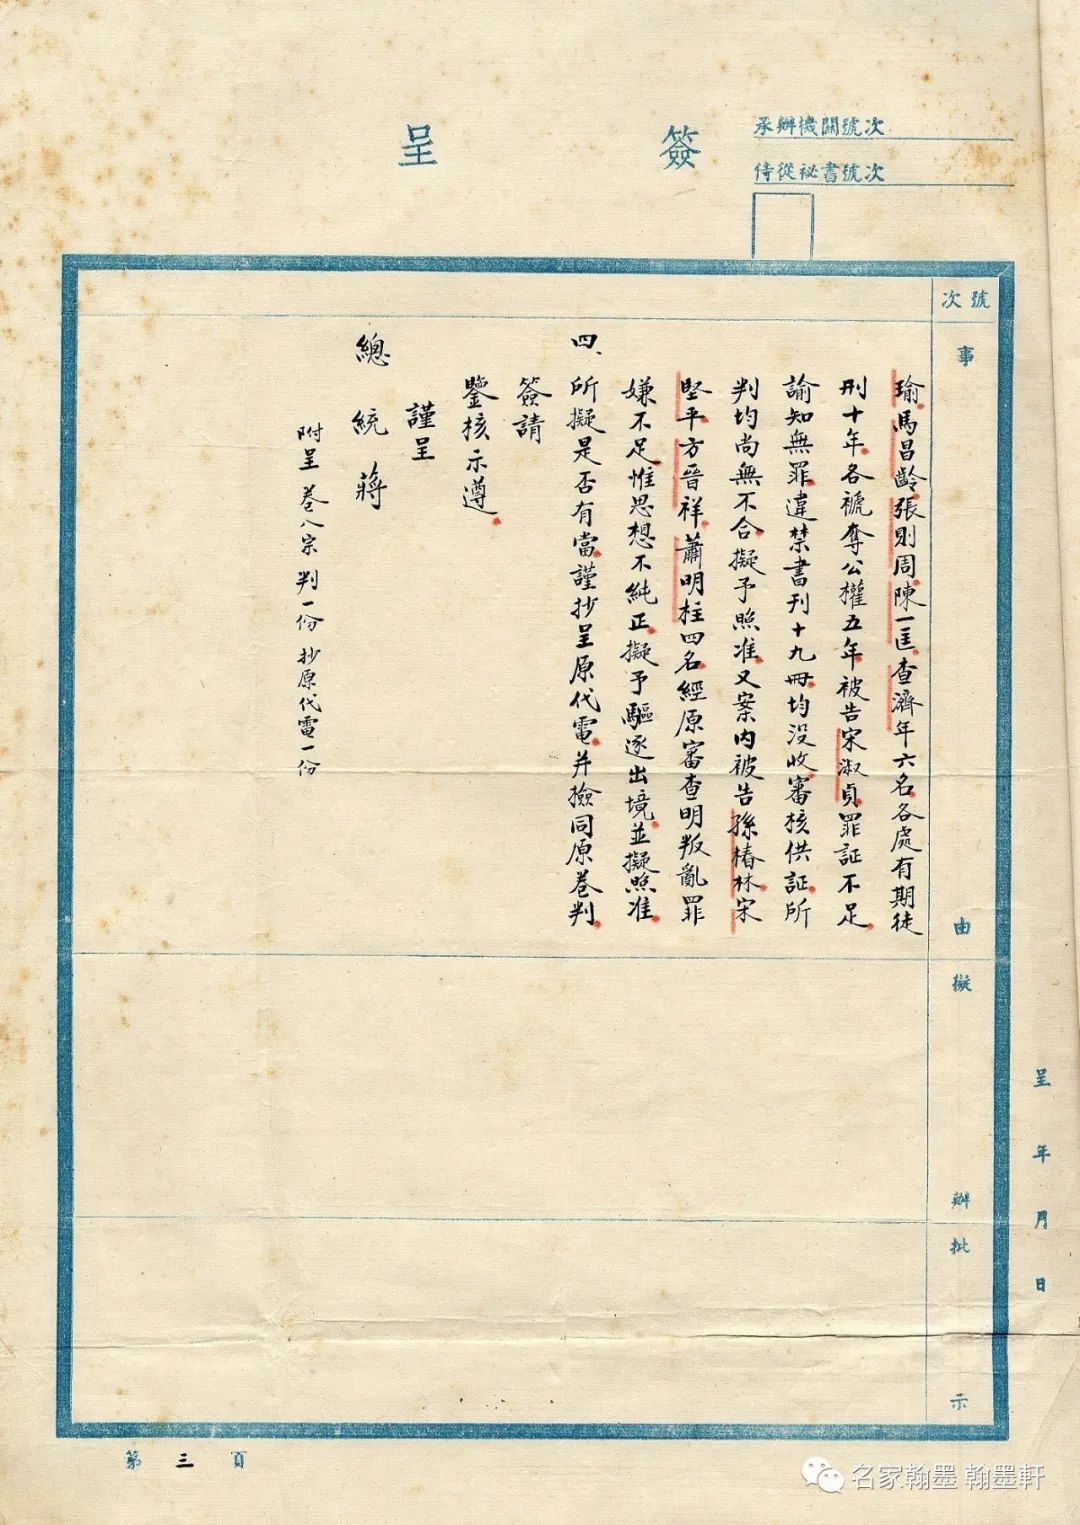 承辦機關號次
侍從祕書號次
簽呈
號次
事由
擬辦
批示
瑜馬昌齡張則周陳一匡查濟年六名各處有期徒
刑十年各褫奪公權五年被告宋淑貞罪証不足
諭知無罪違禁書刊十九冊均沒收審核供証所
判均尚無不合擬予照准又案內被告孫椿林宋
堅平方晉祥蕭明柱四名經原審查明叛亂罪
嫌不足惟思想不純正擬予驅逐出境並擬照准
四、所擬是否有當謹抄呈原代電并撿同原卷判
簽請
鑒核示遵
謹呈
總統蔣
附呈卷八宗判一份抄原代電一份
呈年月日
第三頁
名家翰墨 翰墨軒